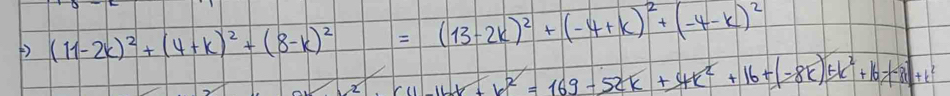 ⇒ (11-2k)² + (4+k)² + (8-k)² = (13-2k)² + (-4+k)² + (-4-k)²
k² = 169 - 52k + 4k² + 16 + (-8k) + k² + 16